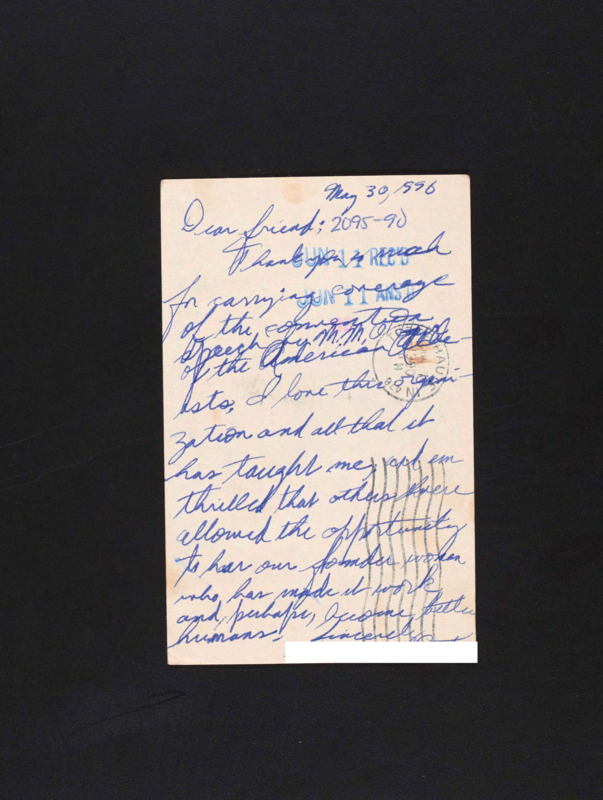 May 30, 1996
Dear friend; 2095-90
Thank you so much
JUN 11 REC'D
for carrying coverage
JUN 11 ANS'D
of the convention
speech by M. M. O'
of the American Athe-
ists. I love this organi-
zation and all that it
has taught me, and am
thrilled that others were
allowed the opportunity
to hear our founder, woman
who, has made it work
and, perhaps, become better
humans! Sincerely